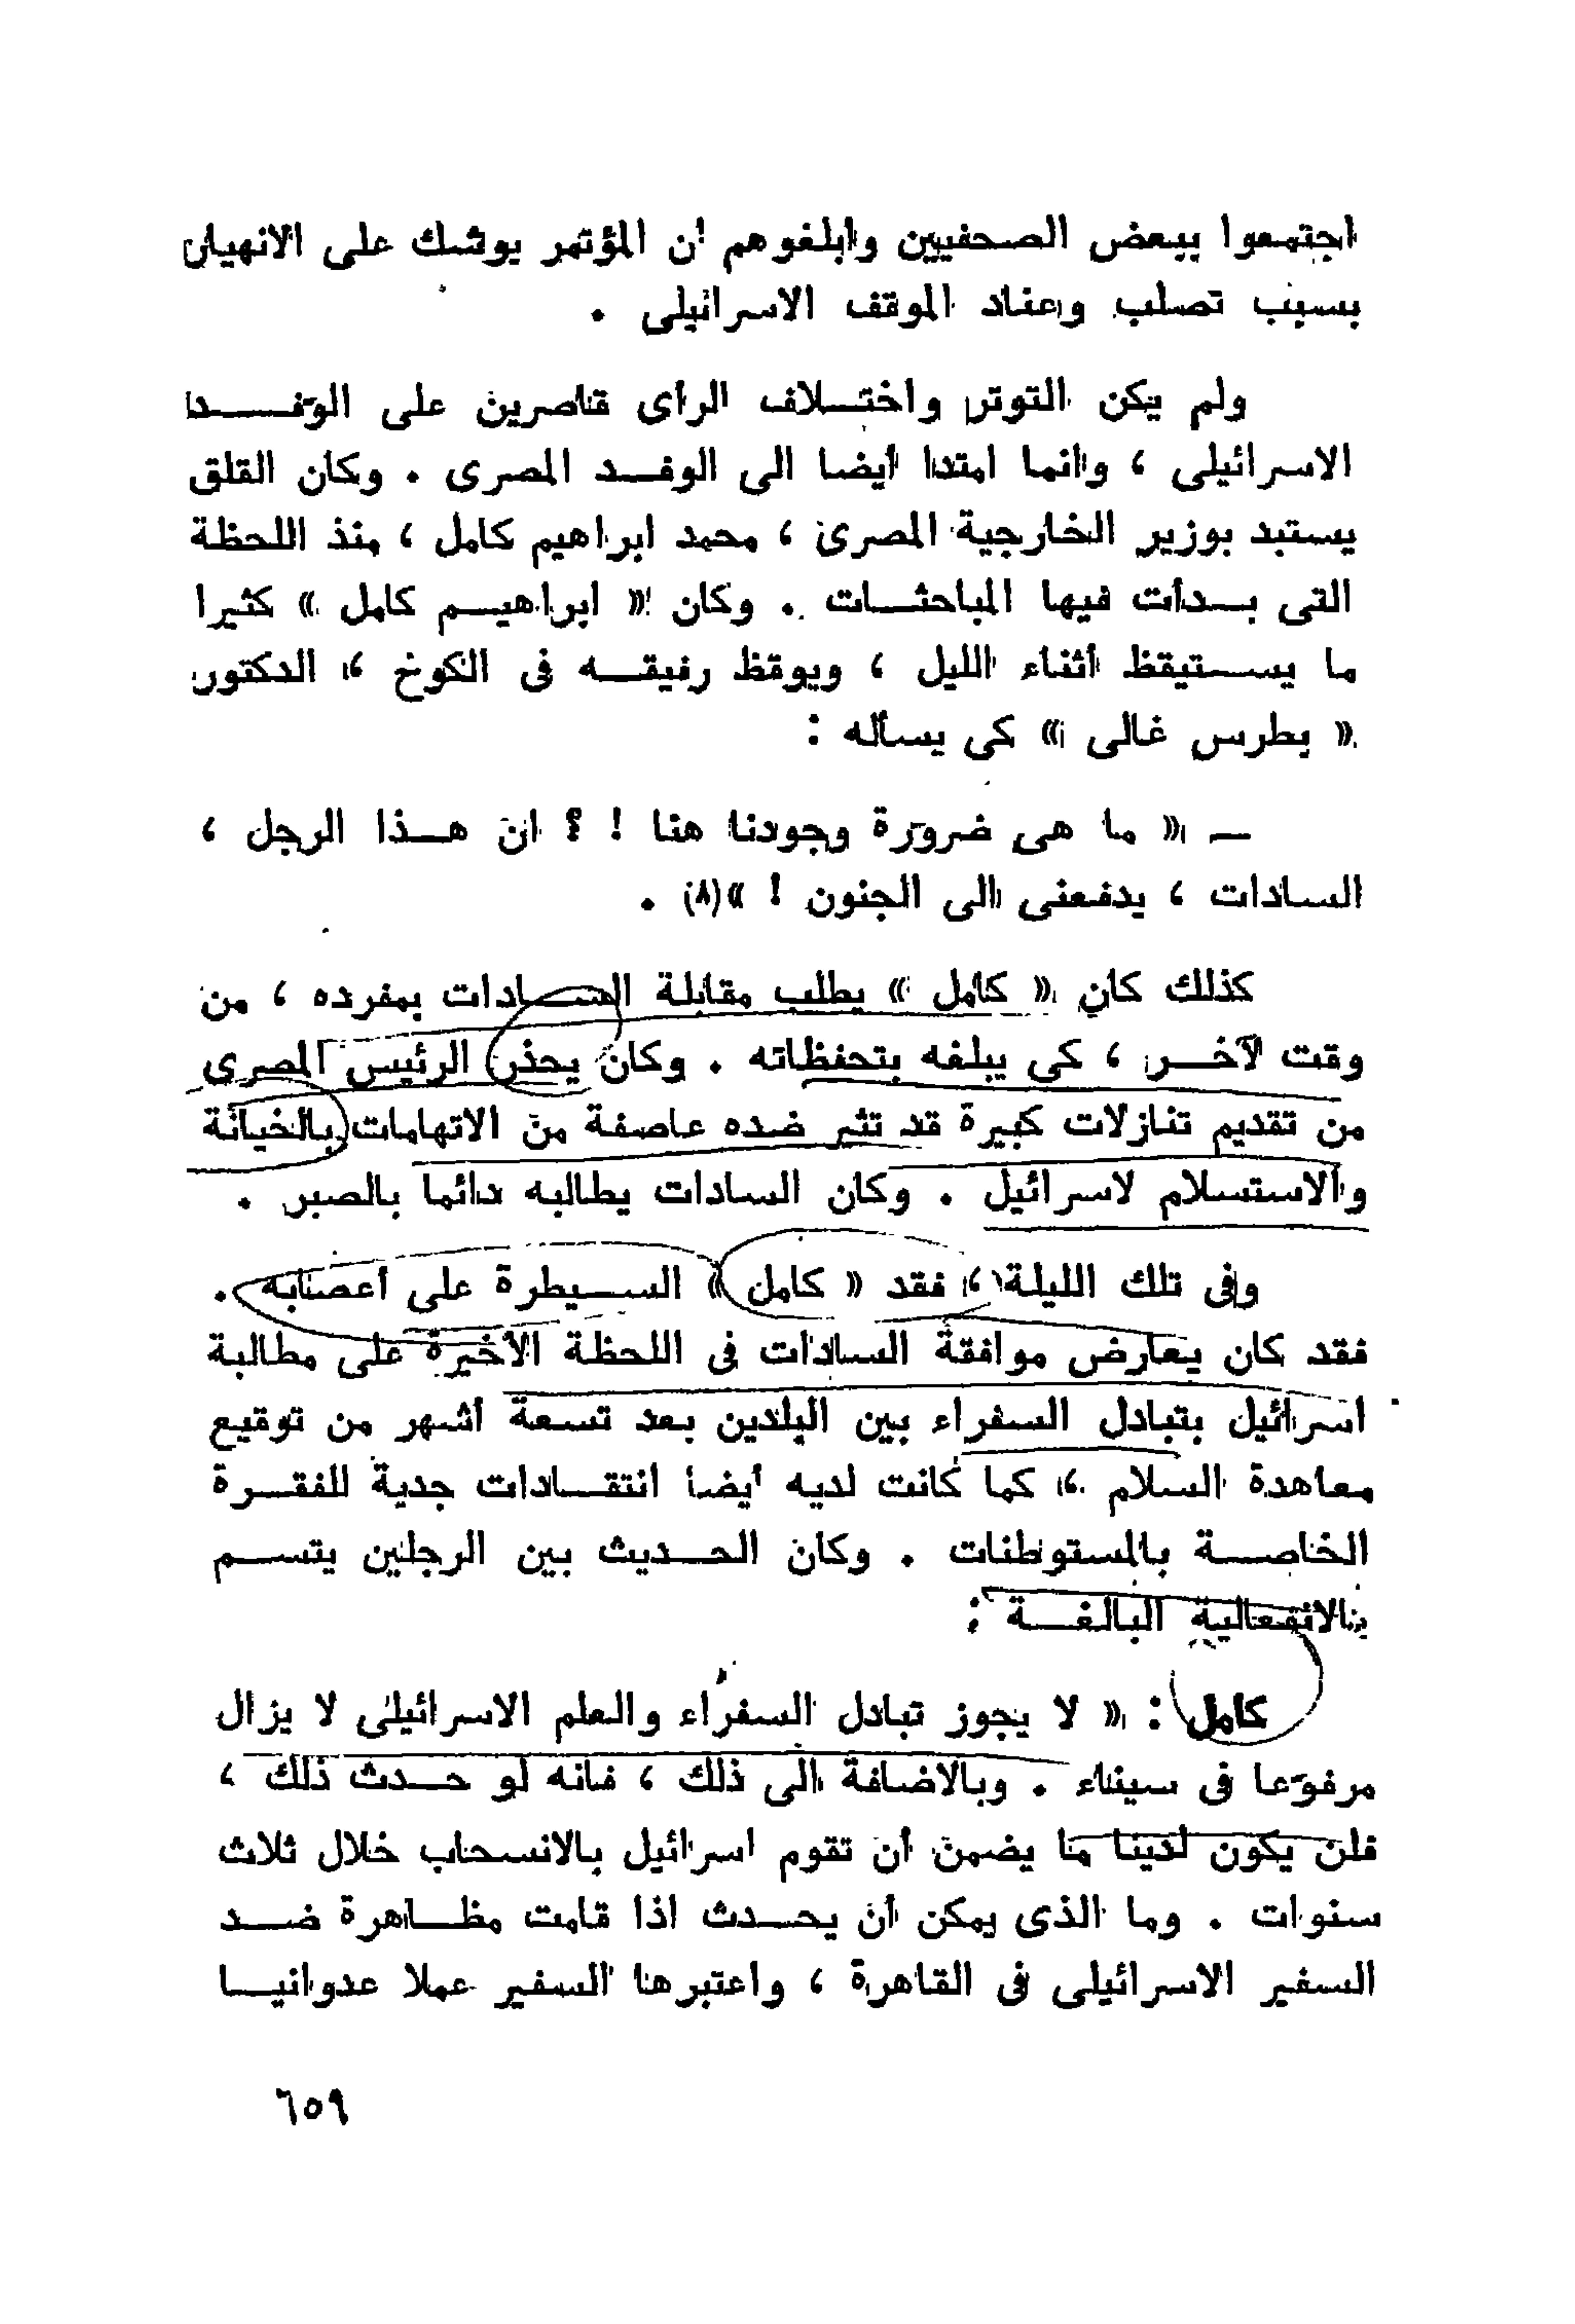 اجتمعوا ببعض الصحفيين وابلغوهم أن المؤتمر يوشك على الانهيار
بسبب تصلب وعناد الموقف الاسرائيلى .
ولم يكن التوتر واختلاف الرأى قاصرين على الوفد
الاسرائيلى ، وانما امتدا أيضا الى الوفد المصرى . وكان القلق
يستبد بوزير الخارجية المصرى ، محمد ابراهيم كامل ، منذ اللحظة
التى بدأت فيها المباحثات . وكان « ابراهيم كامل » كثيرا
ما يستيقظ أثناء الليل ، ويوقظ رفيقه فى الكوخ ، الدكتور
« بطرس غالى » كى يسأله :
— « ما هى ضرورة وجودنا هنا ! ؟ ان هذا الرجل ،
السادات ، يدفعنى الى الجنون ! »(٨) .
كذلك كان « كامل » يطلب مقابلة السادات بمفرده ، من
وقت لآخر ، كى يبلغه بتحفظاته . وكان يحذر الرئيس المصرى
من تقديم تنازلات كبيرة قد تثير ضده عاصفة من الاتهامات بالخيانة
والاستسلام لاسرائيل . وكان السادات يطالبه دائما بالصبر .
وفى تلك الليلة ، فقد « كامل » السيطرة على أعصابه .
فقد كان يعارض موافقة السادات فى اللحظة الأخيرة على مطالبة
اسرائيل بتبادل السفراء بين البلدين بعد تسعة أشهر من توقيع
معاهدة السلام ، كما كانت لديه أيضا انتقادات جدية للفقرة
الخاصة بالمستوطنات . وكان الحديث بين الرجلين يتسم
بالانفعالية البالغة :
كامل : « لا يجوز تبادل السفراء والعلم الاسرائيلى لا يزال
مرفوعا فى سيناء . وبالاضافة الى ذلك ، فانه لو حدث ذلك ،
فلن يكون لدينا ما يضمن أن تقوم اسرائيل بالانسحاب خلال ثلاث
سنوات . وما الذى يمكن أن يحدث اذا قامت مظاهرة ضد
السفير الاسرائيلى فى القاهرة ، واعتبرها السفير عملا عدوانيا
٦٥٩